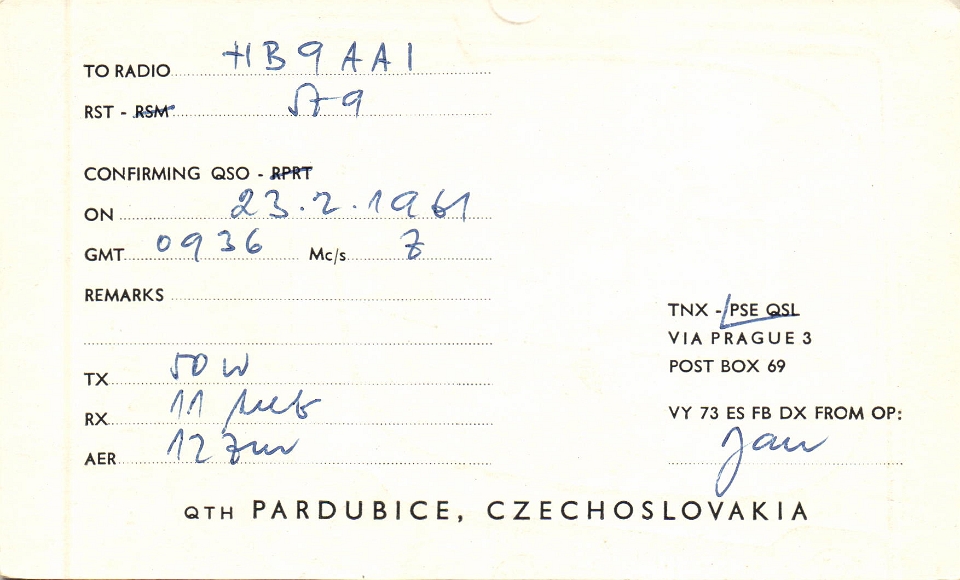 TO RADIO HB9AAI
RST - RSM 579
CONFIRMING QSO - RPRT
ON 23.2.1961
GMT 0936 Mc/s 7
REMARKS
TX 50 W
RX 11
AER 12
TNX - PSE QSL
VIA PRAGUE 3
POST BOX 69
VY 73 ES FB DX FROM OP:
Jan
QTH PARDUBICE, CZECHOSLOVAKIA